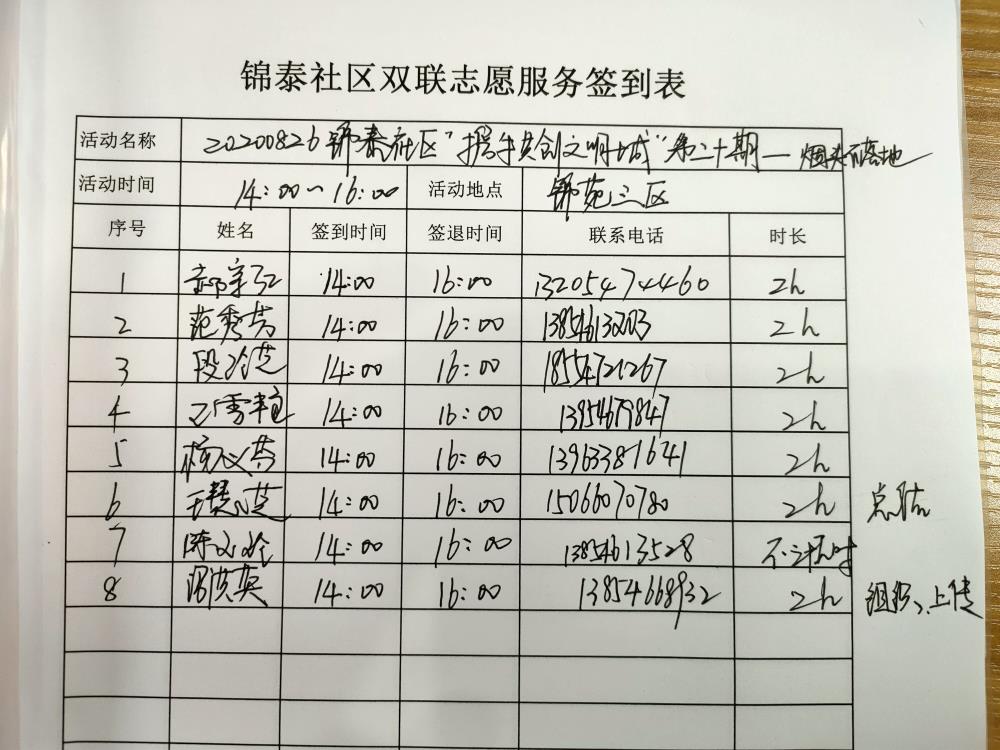 锦泰社区双联志愿服务签到表
活动名称 20200826锦泰社区"携手共创文明城"第二十期—烟头不落地
活动时间 14:00~16:00 活动地点 锦苑三区
序号 姓名 签到时间 签退时间 联系电话 时长
1 14:00 16:00 13205474460 2h
2 范秀芳 14:00 16:00 13854613203 2h
3 段 14:00 16:00 18554721267 2h
4 14:00 16:00 13954679847 2h
5 杨 14:00 16:00 13963381641 2h
6 王慧芝 14:00 16:00 15066070780 2h 点评
7 陈 14:00 16:00 13854613528 不计时
8 洪英 14:00 16:00 13854668932 2h 组织、上传